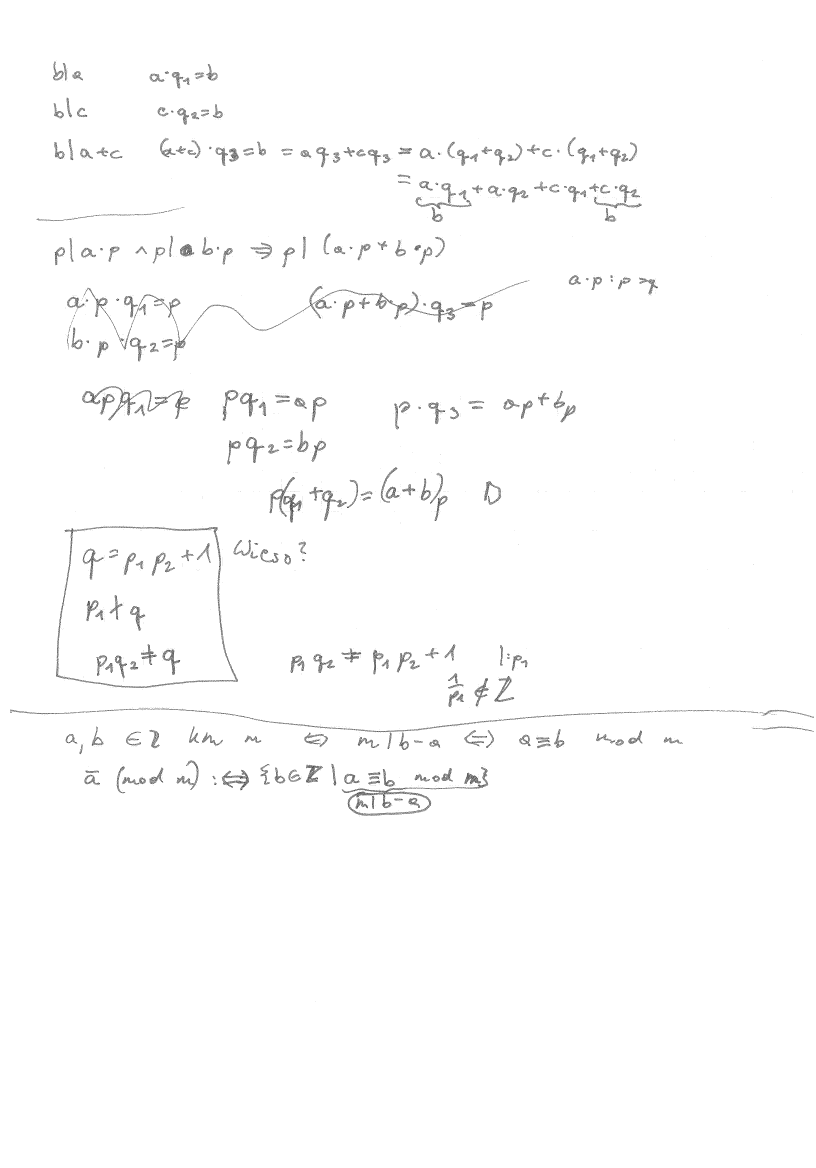 b|a a·q₁=b
b|c c·q₂=b
b|a+c (a+c)·q₃=b = aq₃+cq₃ = a·(q₁+q₂)+c·(q₁+q₂)
= a·q₁+a·q₂+c·q₁+c·q₂
b b
p|a·p ∧ p|b·p ⇒ p|(a·p+b·p)
a·p:p=q
a·p·q₁=p (a·p+b·p)·q₃=p
b·p·q₂=p
apq₁=p pq₁=ap p·q₃= ap+bp
pq₂=bp
p(q₁+q₂)=(a+b)p D
q=p₁p₂+1 Wieso?
p₁∤q
p₁q₂≠q p₁q₂≠p₁p₂+1 |:p₁
1/p₁ ∉ ℤ
a,b ∈ℤ km m ⇔ m|b-a ⇔ a≡b mod m
ā (mod m) :⇔ {b∈ℤ | a≡b mod m}
m|b-a